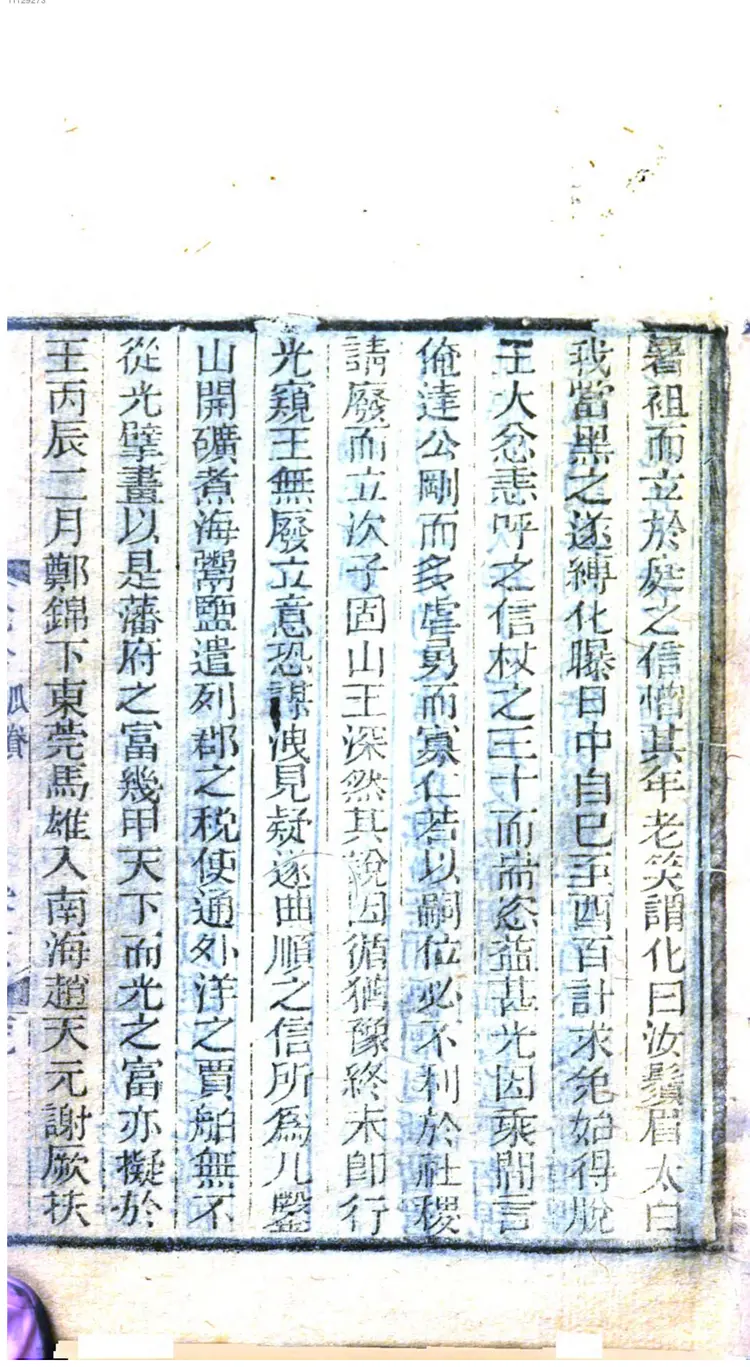 11129273
暑袒而立於庭之信惜其年老笑謂化曰汝鬚眉太白
我當黑之遂縛化曝日中自巳至酉百計求免始得脫
王大忿恚呼之信杖之三十而耑恣益甚光因乘間言
俺達公剛而多虐勇而寡仁若以嗣位必不利於社稷
請廢而立次子固山王深然其說因循猶豫終未即行
光窺王無廢立意恐謀洩見疑遂曲順之信所為凡鑿
山開礦煮海鬻鹽遣列郡之稅使通外洋之賈舶無不
從光擘畫以是藩府之富幾甲天下而光之富亦擬於
王丙辰二月鄭錦下東莞馬雄入南海趙天元謝厥扶